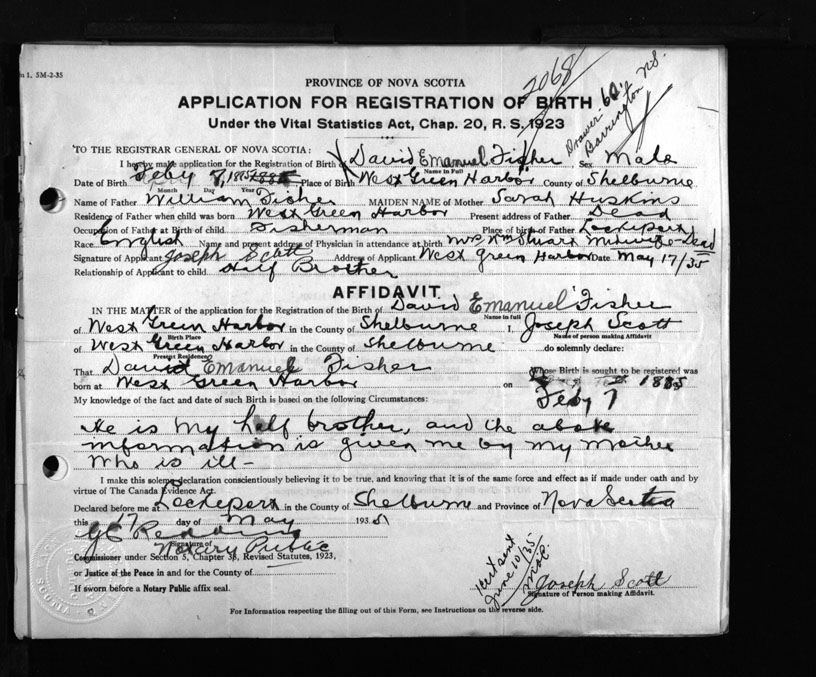 n 1. 5M-2-35
2068
Drawer 62,
Barrington N.S.
PROVINCE OF NOVA SCOTIA
APPLICATION FOR REGISTRATION OF BIRTH
Under the Vital Statistics Act, Chap. 20, R. S. 1923
TO THE REGISTRAR GENERAL OF NOVA SCOTIA:
I hereby make application for the Registration of Birth of David Emanuel Fisher Sex Male
Name in Full
Date of Birth Feby 7, 1885 Place of Birth West Green Harbor County of Shelburne
Month Day Year
Name of Father William Fisher MAIDEN NAME of Mother Sarah Huskins
Residence of Father when child was born West Green Harbor Present address of Father Dead
Occupation of Father at Birth of child Fisherman Place of birth of Father Lockeport
Race English Name and present address of Physician in attendance at birth Mrs Wm Stuart Midwife-Dead
Signature of Applicant Joseph Scott Address of Applicant West Green Harbor Date May 17/35
Relationship of Applicant to child Half Brother
AFFIDAVIT
IN THE MATTER of the application for the Registration of the Birth of David Emanuel Fisher
Name in full
of West Green Harbor in the County of Shelburne I, Joseph Scott
Birth Place Name of person making Affidavit
of West Green Harbor in the County of Shelburne do solemnly declare:
Present Residence
That David Emanuel Fisher Whose Birth is sought to be registered was
born at West Green Harbor on 1885
Feby 7
My knowledge of the fact and date of such Birth is based on the following Circumstances:
He is my half brother, and the above
information is given me by my mother
who is ill-
I make this solemn declaration conscientiously believing it to be true, and knowing that it is of the same force and effect as if made under oath and by
virtue of The Canada Evidence Act.
Declared before me at Lockeport in the County of Shelburne and Province of Nova Scotia
this 17 day of May 1935
Signature of
Notary Public
Commissioner under Section 5, Chapter 38, Revised Statutes, 1923,
or Justice of the Peace in and for the County of
If sworn before a Notary Public affix seal.
Cert sent
June 10/35
Joseph Scott
Signature of Person making Affidavit.
For Information respecting the filling out of this Form, see Instructions on the reverse side.